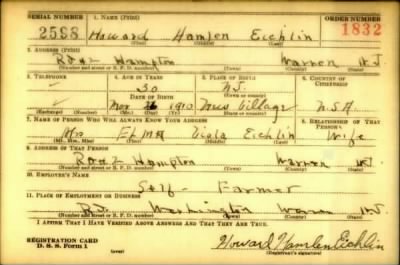 SERIAL NUMBER 1. NAME (Print) ORDER NUMBER
2598 Howard Hamlen Eichlin 1832
(First) (Middle) (Last)
2. ADDRESS (Print)
Rd #2 Hampton Warren N.J.
(Number and street or R. F. D. number) (Town) (County) (State)
3. TELEPHONE 4. AGE IN YEARS 5. PLACE OF BIRTH 6. COUNTRY OF CITIZENSHIP
30 N.J.
DATE OF BIRTH (Town or county)
Nov 1910 New Village U.S.A
(Exchange) (Number) (Mo.) (Day) (Yr.) (State or country)
7. NAME OF PERSON WHO WILL ALWAYS KNOW YOUR ADDRESS 8. RELATIONSHIP OF THAT PERSON
Mrs Elma Viola Eichlin Wife
(Mr., Mrs., Miss) (First) (Middle) (Last)
9. ADDRESS OF THAT PERSON
Rd #2 Hampton Warren N.J.
(Number and street or R. F. D. number) (Town) (County) (State)
10. EMPLOYER'S NAME
Self - Farmer
11. PLACE OF EMPLOYMENT OR BUSINESS
Washington Warren N.J.
(Number and street or R. F. D. number) (Town) (County) (State)
I AFFIRM THAT I HAVE VERIFIED ABOVE ANSWERS AND THAT THEY ARE TRUE.
REGISTRATION CARD
D. S. S. Form 1 (over) Howard Hamlen Eichlin
(Registrant's signature)